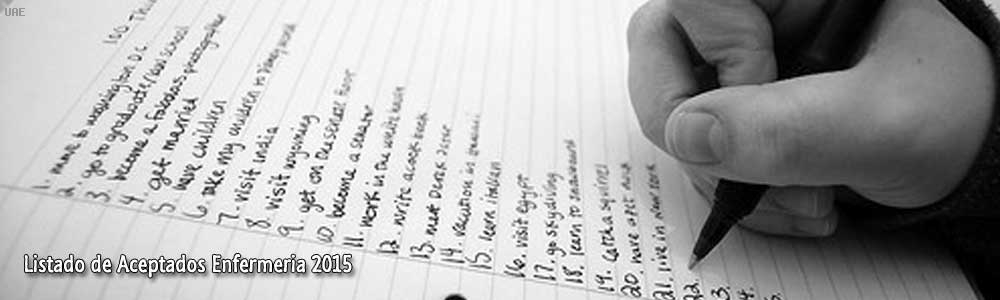 UAE
100 Thi
1. move to washington D.C.
2. go to graduate/law school
3. become a fabulous photographer
4. get married
5. have children
6. take my children to disney world
7. visit india
8. visit wyoming
9. get on the senate floor
10. become a senator
11. work in the white house
12. write a cook book
13. meet Derek Jeter
14. vacation in
15. learn italian
16. visit egypt
17. go skydiving
18. learn to
19. catch a squirrel
20. have a pet duck
21. live in New York
22.
3.
4.
5.
Listado de Aceptados Enfermeria 2015